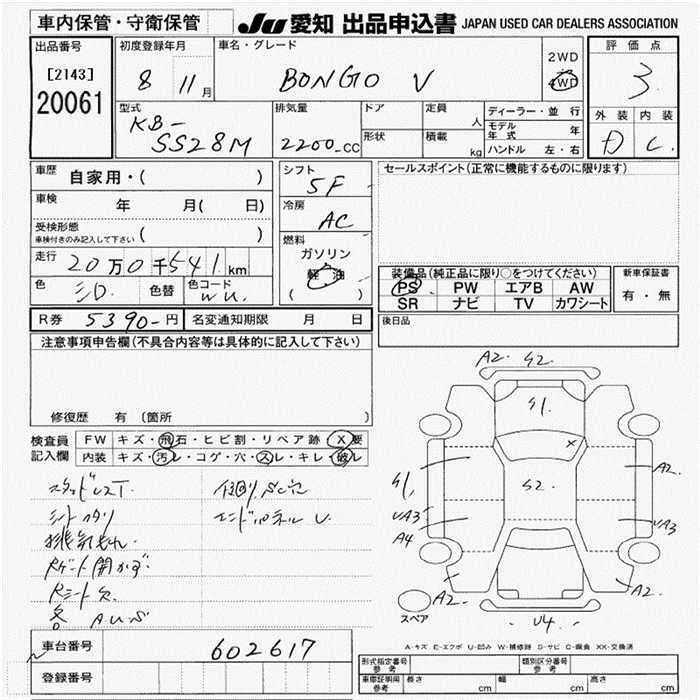 車内保管・守衛保管
JU 愛知 出品申込書 JAPAN USED CAR DEALERS ASSOCIATION
出品番号
[2143]
20061
初度登録年月
8 11月
車名・グレード
BONGO V
2WD
4WD
評価点
3
外装 内装
D C
型式
KB-
SS28M
排気量
2200 CC
ドア
形状
定員 人
積載 kg
ディーラー・並行
モデル年式 年
ハンドル 左・右
車歴 自家用・( )
車検 年 月( 日)
受検形態
車検付きのみ記入して下さい ( )
走行 20万0千541km
色 シロ 色替
色コード WU
シフト 5F
冷房 AC
燃料
ガソリン
軽油
( )
セールスポイント(正常に機能するものに限ります)
装備品(純正品に限り○をつけてください)
PS PW エアB AW
SR ナビ TV カワシート
新車保証書
有・無
R券 5390-円
名変通知期限 月 日
後日品
注意事項申告欄(不具合内容等は具体的に記入して下さい)
修復歴 有 (箇所 )
検査員
記入欄
FW キズ・飛石・ヒビ割・リペア跡 X要
内装 キズ・汚レ・コゲ・穴・スレ・キレ・破レ
スタッドレスT.
シートヘタリ
排気もれ
Rゲート開かず
Rシート欠
下廻りSC穴
エンドパネルU.
A2. S2.
S1.
X
S2.
S1,
UA3
A4
A2.
UA3
A2-
A2.
U4.
スペア
A-キズ E-エクボ U-凹み W-補修跡 S-サビ C-腐食 XX-交換済
車台番号 602617
登録番号
型式指定番号
参考
類別区分番号
参考
車庫証明用
参考
長さ cm
幅 cm
高さ cm